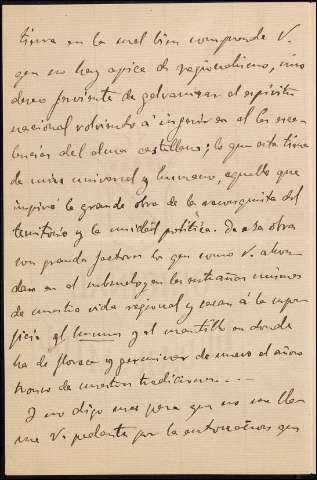 tierra en la cual bien comprende V.
que no hay apice de regionalismo, sino
deseo ferviente de galvanizar el espíritu
nacional volviendo á ingerir en el las esen-
cias del alma castellana; lo que esta tiene
de mas universal y humano, aquello que
inspiró la grande obra de la reconquista del
territorio y la unidad política. De esa obra
son grandes factores los que como V. ahon-
dan en el subsuelo y en las entrañas mismas
de nuestra vida regional y sacan á la super-
ficie el humus y el mantillo en donde
ha de florecer y germinar de nuevo el añoso
tronco de nuestras tradiciones....
Y no digo mas para que no me lla-
me V. pedante por la